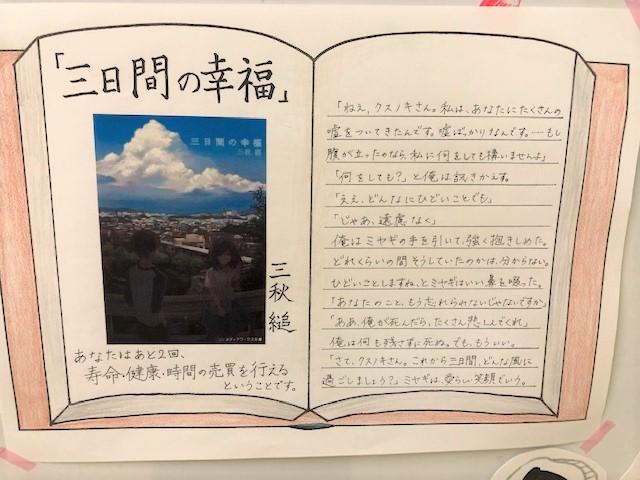 「三日間の幸福」
三日間の幸福
三秋 縋
メディアワークス文庫
三秋縋
あなたはあと2回、
寿命・健康・時間の売買を行える
ということです。
「ねえ、クスノキさん。私は、あなたにたくさんの
嘘をついてきたんです。嘘ばっかりなんです。……もし
腹が立ったのなら、私に何をしても構いませんよ」
「何をしても?」と俺は訊きかえす。
「ええ、どんなにひどいことでも」
「じゃあ、遠慮なく」
俺はミヤギの手を引いて、強く抱きしめた。
どれくらいの間そうしていたのかは、分からない。
ひどいことしますね、とミヤギはいい、鼻を啜った。
「あなたのこと、もう忘れられないじゃないですか」
「ああ、俺が死んだら、たくさん悲しんでくれ」
俺は何も残さずに死ぬ。でも、もういい。
「さて、クスノキさん。これから三日間、どんな風に
過ごしましょう?」ミヤギは、愛らしい笑顔でいう。